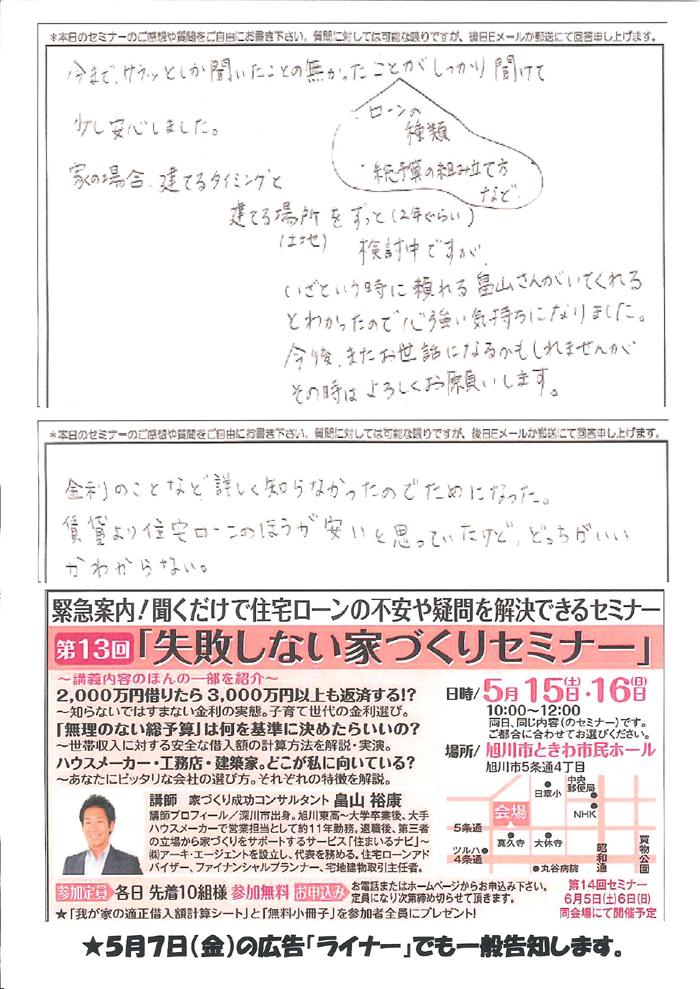 *本日のセミナーのご感想や質問をご自由にお書き下さい。質問に対しては可能な限りですが、後日Eメールか郵送にて回答申し上げます。
今まで、サラッとしか聞いたことの無かったことがしっかり聞けて
少し安心しました。
ローンの
種類
・総予算の組み立て方
など
家の場合、建てるタイミングと
建てる場所をずっと(2年ぐらい)
(土地)
検討中ですが、
いざという時に頼れる畠山さんがいてくれる
とわかったので心強い気持ちになりました。
今後、またお世話になるかもしれませんが
その時はよろしくお願いします。
*本日のセミナーのご感想や質問をご自由にお書き下さい。質問に対しては可能な限りですが、後日Eメールか郵送にて回答申し上げます。
金利のことなど詳しく知らなかったのでためになった。
賃貸より住宅ローンのほうが安いと思っていたけど、どっちがいい
かわからない。
緊急案内!聞くだけで住宅ローンの不安や疑問を解決できるセミナー
第13回「失敗しない家づくりセミナー」
~講義内容のほんの一部を紹介~
2,000万円借りたら3,000万円以上も返済する!?
~知らないではすまない金利の実態。子育て世代の金利選び。
「無理のない総予算」は何を基準に決めたらいいの?
~世帯収入に対する安全な借入額の計算方法を解説・実演。
ハウスメーカー・工務店・建築家。どこが私に向いている?
~あなたにピッタリな会社の選び方。それぞれの特徴を解説。
日時/5月15日(土)・16日(日)
10:00~12:00
両日、同じ内容(のセミナー)です。
ご都合に合わせてお選びください。
場所/旭川市ときわ市民ホール
旭川市5条通4丁目
講師 家づくり成功コンサルタント 畠山 裕康
講師プロフィール/深川市出身。旭川東高~大学卒業後、大手
ハウスメーカーで営業担当として約11年勤務。退職後、第三者
の立場から家づくりをサポートするサービス「住まいるナビ」~
㈱アーキ・エージェントを設立し、代表を務める。住宅ローンアド
バイザー、ファイナンシャルプランナー、宅地建物取引主任者。
日章小
中央
郵便局
会場
NHK
5条通
真久寺
大休寺
昭和通
買物公園
ツルハ
4条通
丸谷病院
参加定員 各日 先着10組様 参加無料 お申込み お電話またはホームページからお申込み下さい。
定員になり次第締め切らせて頂きます。
第14回セミナー
6月5日(土)6日(日)
同会場にて開催予定
★「我が家の適正借入額計算シート」と「無料小冊子」を参加者全員にプレゼント!
★5月7日(金)の広告「ライナー」でも一般告知します。